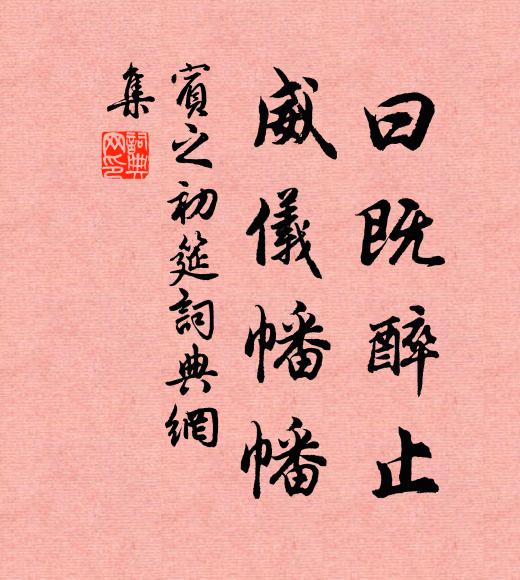 曰既醉止
威儀幡幡
賓之初筵詞典網
集
詞典
网印